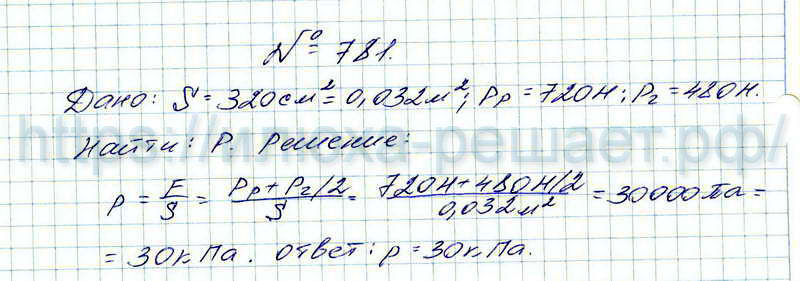 № 781.
Дано: S = 320 см² = 0,032 м²; Pр = 720 Н; Pг = 480 Н.
https://миска-решает.рф/
Найти: P. Решение:
p = F/S = (Pр + Pг/2)/S = (720Н + 480Н/2)/0,032 м² = 30000 Па =
= 30 кПа. Ответ: p = 30 кПа.